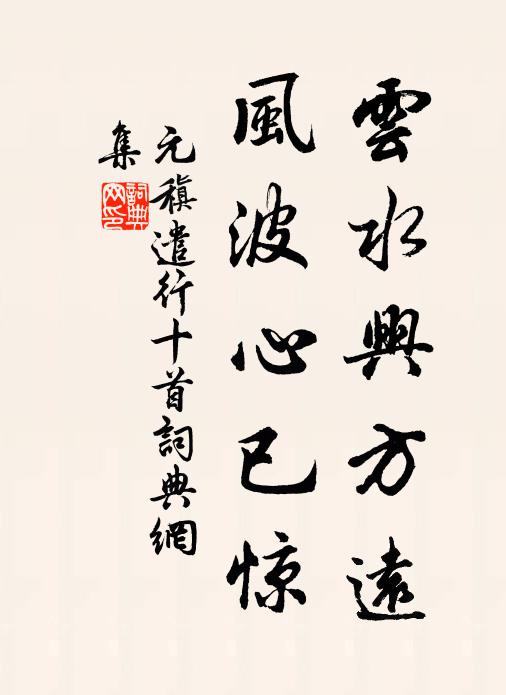 雲水興方遠
風波心已惊
元稹遣行十首詞典網
集
詞典
网印